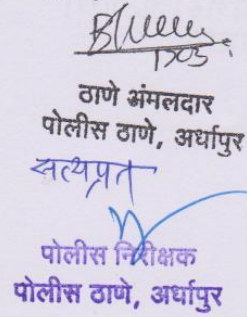 1303
ठाणे अंमलदार
पोलीस ठाणे, अर्धापुर
सत्यप्रत
पोलीस निरीक्षक
पोलीस ठाणे, अर्धापुर